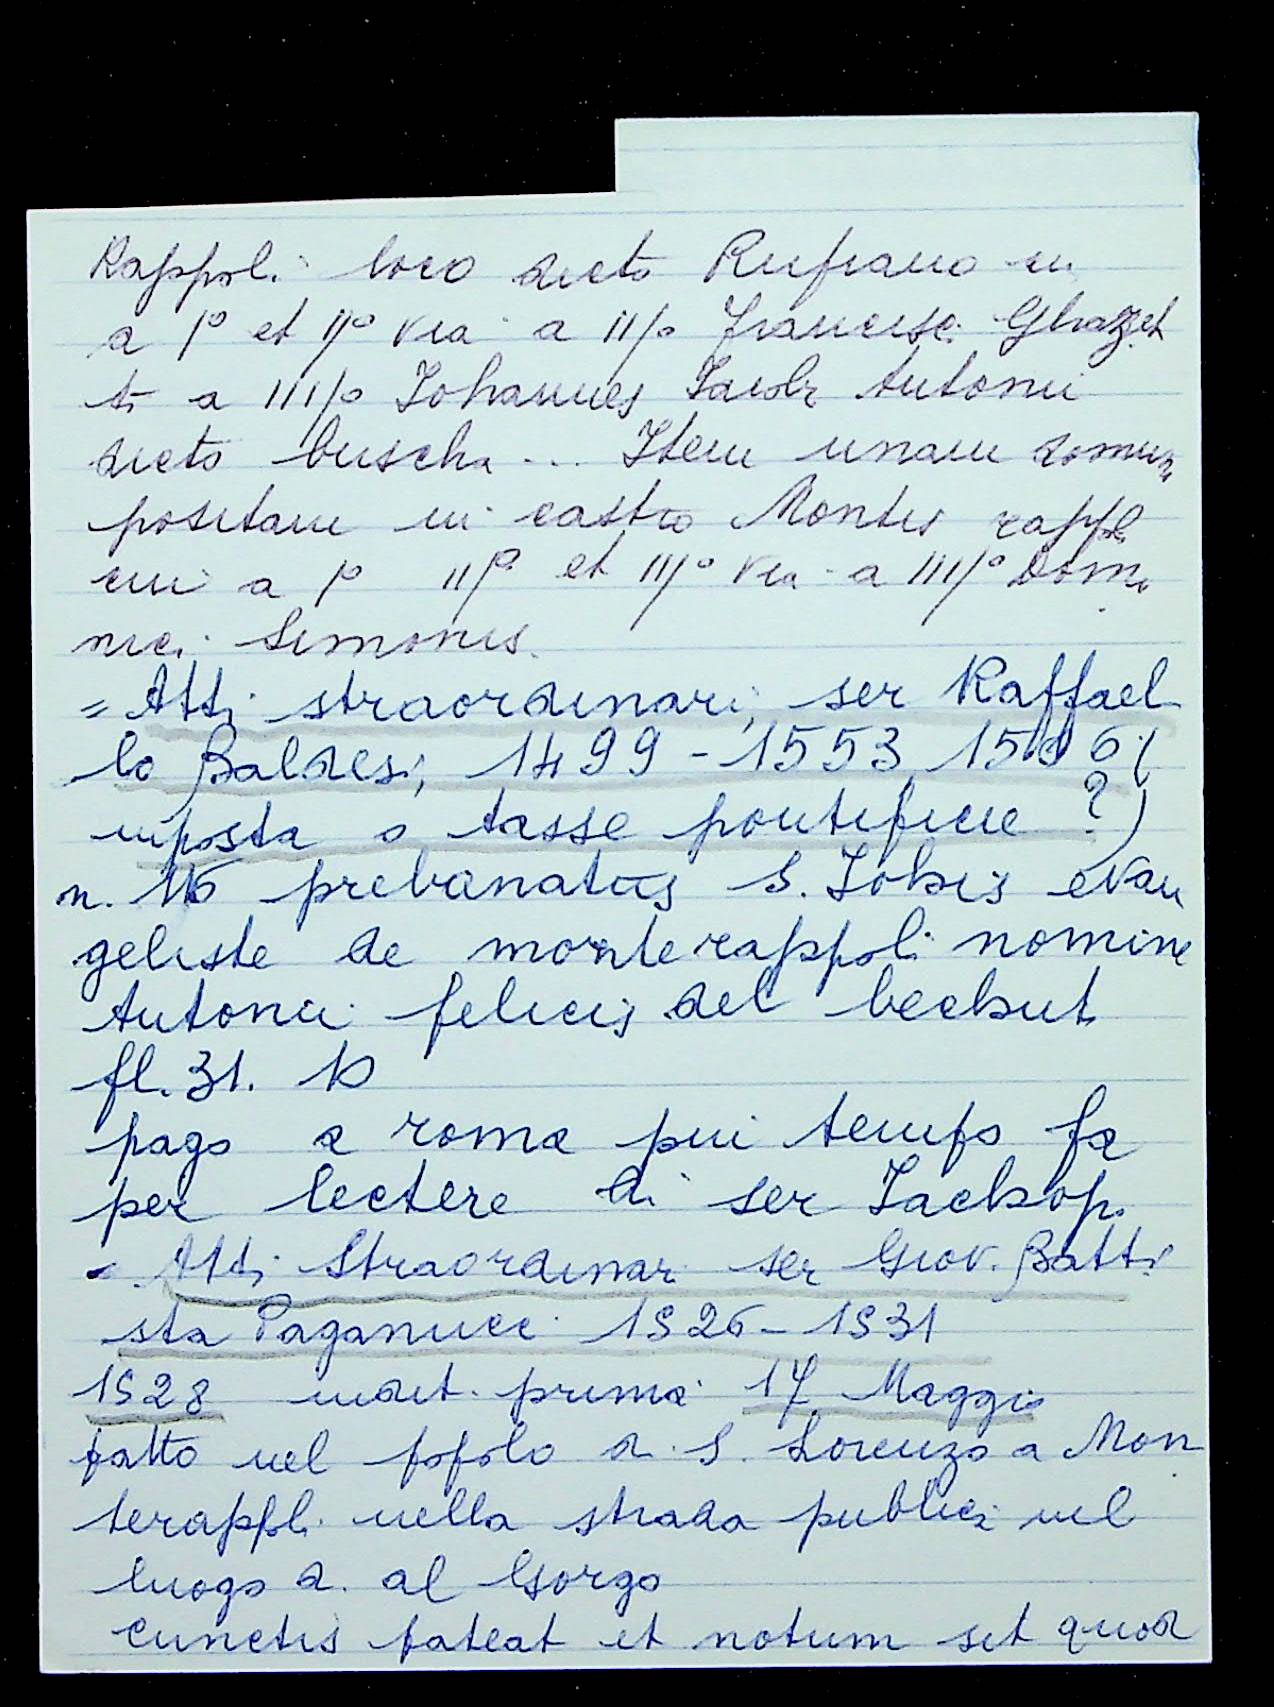 Rappoli loco dicto Rufiano cu
a p° et IJ° via a IIJ° Francisc. Ghazzet
ti a IIIJ° Johannes Jacobi Antonii
dicto buscha ... Item unam domum
positam in castro Montis rappli
cui a p° IIJ° et IIJ° via a IIIJ° Domi
nici Simonis.
= Atti straordinari, ser Raffael
lo Baldesi, 1499 - 1553
imposta o tasse pontificie ?)
n. 16 prebanatus S. Johis evan
geliste de monterappoli nomine
Antonii felicis del becchut
fl. 31. 10
pago a roma piu tempo fa
per lectere di ser Jachop.
= Atti Straordinari ser Giov. Batti
sta Paganucci 1526 - 1531
1528 indit. prima 17 Maggio
fatto nel popolo d. S. Lorenzo a Mon
terappoli nella strada publici nel
luogo d. al Gorgo
cunctis pateat et notum sit quod